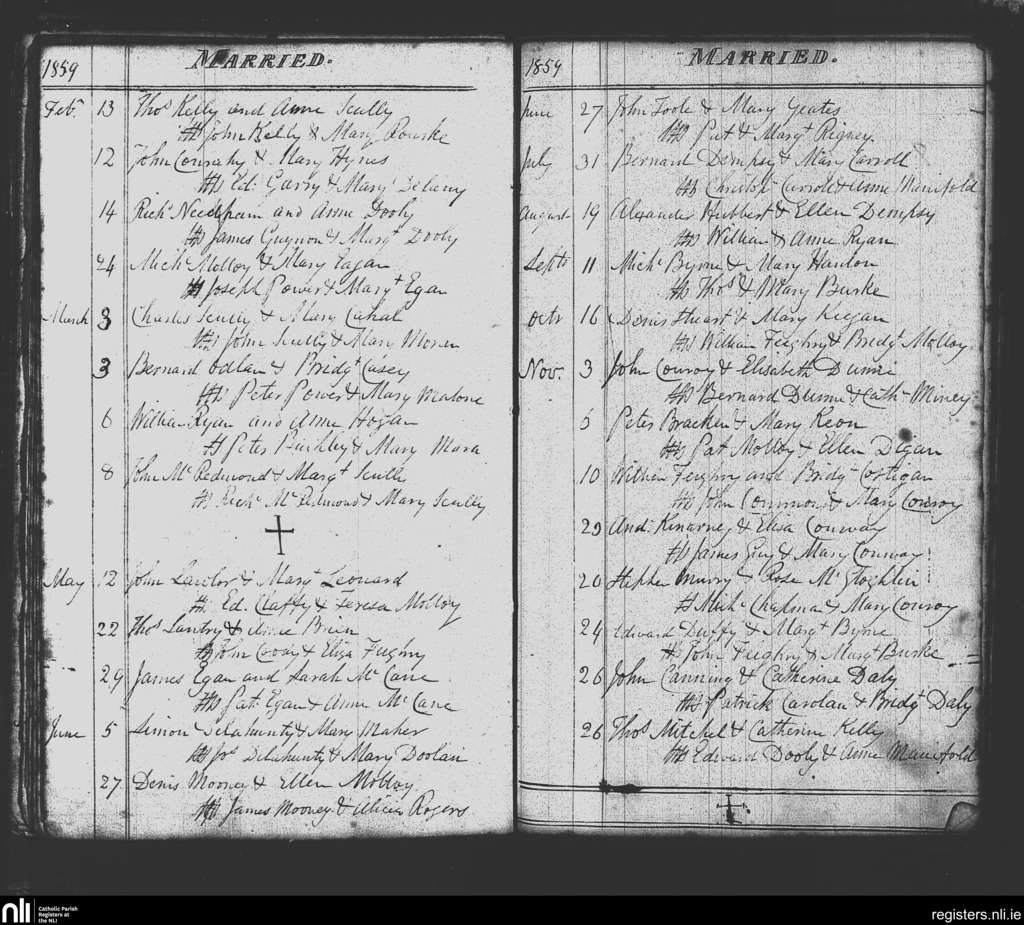 1859 MARRIED.
Feb. 13 Thos Kelly and Anne Scully
Ws John Kelly & Mary Rourke
12 John Conrahy & Mary Hynes
Ws Ed. Garry & Mary Delany
14 Richd Needham and Anne Dooly
Ws James Guynon & Margt Dooly
24 Michl Molloy & Mary Eagan
Ws Joseph Power & Margt Egan
March 3 Charles Scully & Mary Cahal
Ws John Scully & Mary Moran
3 Bernard Odlan & Bridgt Casey
Ws Peter Power & Mary Malone
6 William Ryan and Anne Hogan
Ws Peter Buckley & Mary Mara
8 John Mc Redmond & Margt Scully
Ws Richd Mc Redmond & Mary Scully
May 12 John Lawlor & Margt Leonard
Ws Ed. Claffy & Teresa Molloy
22 Thos Lantry & Anne Brien
Ws John & Eliza Fughry
29 James Egan and Sarah Mc Cane
Ws Pat. Egan & Anne Mc Cane
June 5 Simon Delahunty & Mary Maher
Ws Delahunty & Mary Doolan
27 Denis Mooney & Ellen Molloy.
Ws James Mooney & Alicia Rogers
1859 MARRIED.
June 27 John Toole & Mary Yeates
Ws Pat & Margt Rigney.
July 31 Bernard Dempsy & Mary Carroll
Ws Christop. Carroll & Anne Manifold
August 19 Alexander Hubbert & Ellen Dempsy
Ws William & Anne Ryan
Septr 11 Michl Byrne & Mary Hanlon
Ws Thos & Mary Burke
Octr 16 Denis Stuart & Mary Keegan
Ws William Fughry & Bridgt Molloy
Nov. 3 John Conroy & Elisabeth Dunne
Ws Bernard Dunne & Cath. Miney
5 Peter Bracken & Mary Keon
Ws Pat Molloy & Ellen Digan
10 William Fughry and Bridgt Costigan
Ws John Commons & Mary Conroy
20 And. Kinarney & Elisa Conway
Ws James Guy & Mary Conway
20 Stephen & Rose Mc Gloghlin
Ws Michl Chapman & Mary Conroy
24 Edward Duffy & Margt Byrne
Ws John Fughry & Margt Burke
26 John Canning & Catherine Daly
Ws Patrick Carolan & Bridgt Daly
26 Thos Mitchel & Catherine Kelly
Ws Edward Dooly & Anne Manifold
nli Catholic Parish
Registers at
the NLI
registers.nli.ie